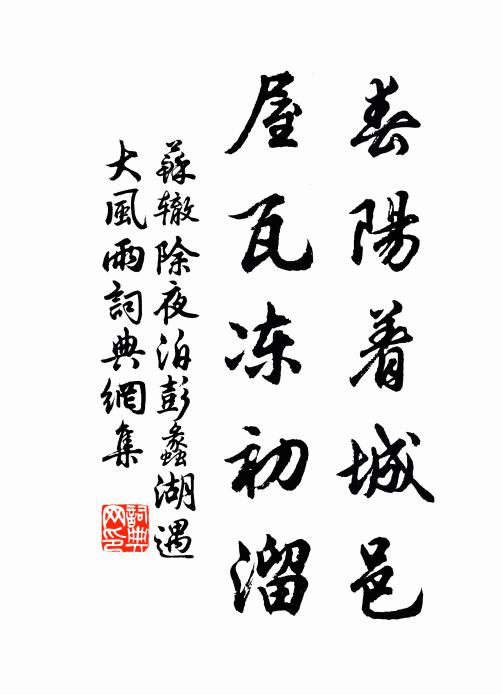 春陽着城邑
屋瓦冻初溜
蘇辙除夜泊彭蠡湖遇
大風雨詞典網集
詞典
网印